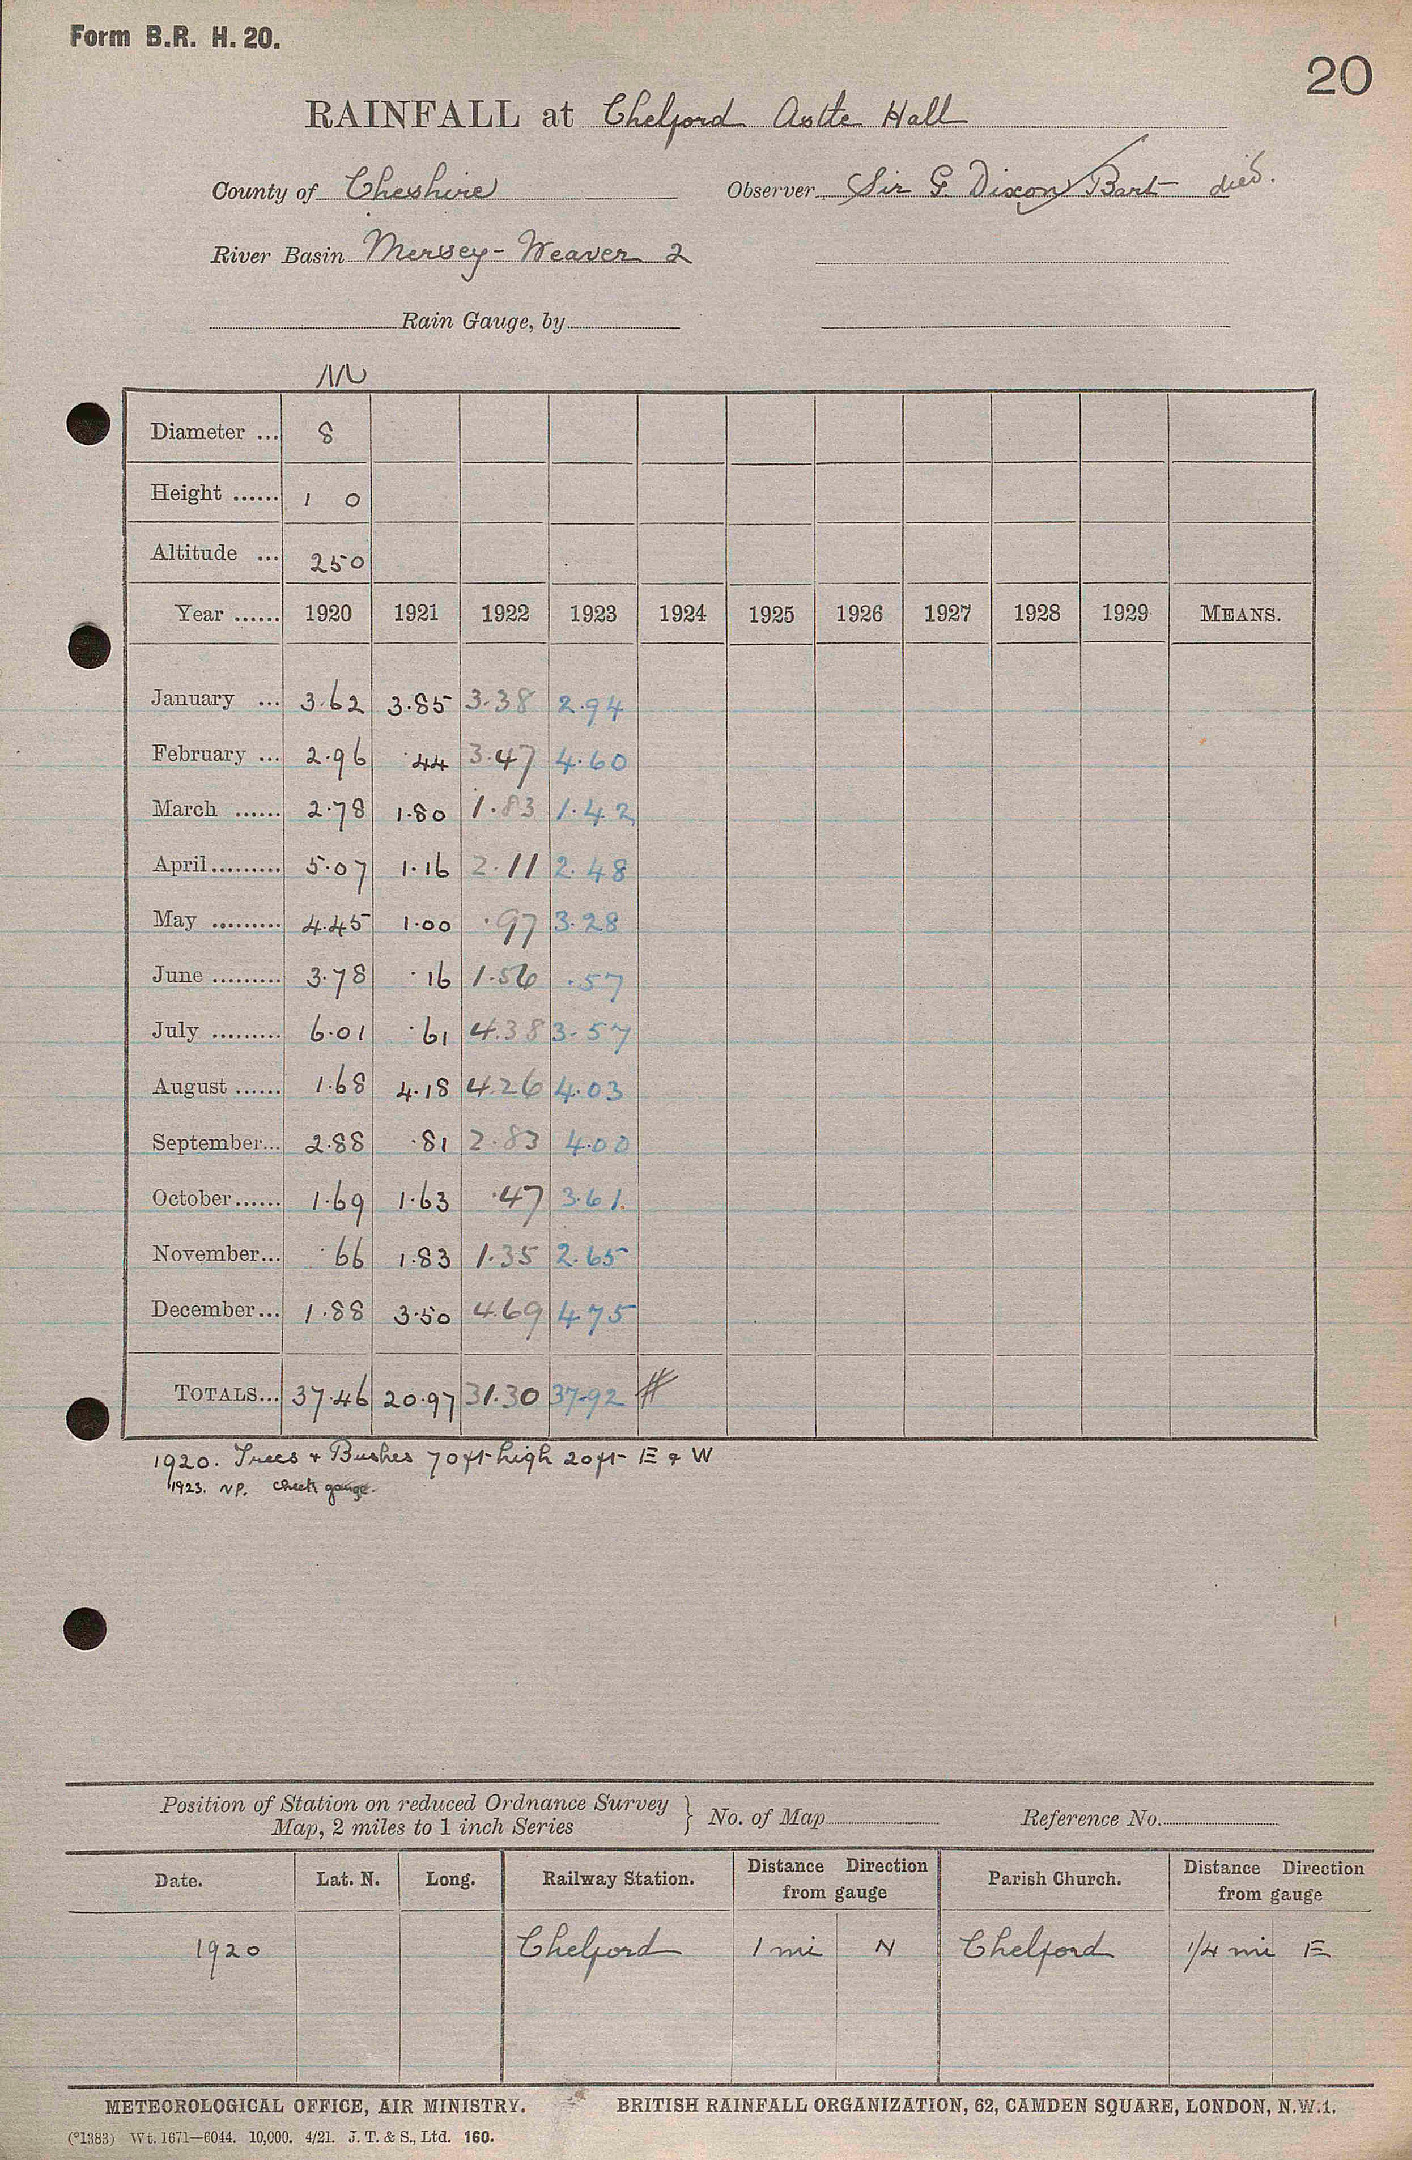 Form B.R. H. 20.
20
RAINFALL at Chelford Astle Hall
County of Cheshire Observer Sir G Dixon Bart died.
River Basin Mersey-Weaver 2
Rain Gauge, by
Diameter ... 8
Height ...... 1 0
Altitude ... 250
Year ...... 1920 1921 1922 1923 1924 1925 1926 1927 1928 1929 MEANS.
January ... 3.62 3.85 3.38 2.94
February ... 2.96 .44 3.47 4.60
March ...... 2.78 1.80 1.83 1.42
April ......... 5.07 1.16 2.11 2.48
May ......... 4.45 1.00 .97 3.28
June ......... 3.78 .16 1.56 .57
July ......... 6.01 .61 4.38 3.57
August ...... 1.68 4.18 4.26 4.03
September... 2.88 .81 2.83 4.00
October...... 1.69 1.63 .47 3.61
November... .66 1.83 1.35 2.65
December... 1.88 3.50 4.69 4.75
TOTALS... 37.46 20.97 31.30 37.92 #
1920. Trees & Bushes 70ft high 20ft E & W
1923. NP. check gauge.
Position of Station on reduced Ordnance Survey Map, 2 miles to 1 inch Series } No. of Map Reference No.
Date. Lat. N. Long. Railway Station. Distance Direction from gauge Parish Church. Distance Direction from gauge
1920 Chelford 1 mi N Chelford 1/4 mi E
METEOROLOGICAL OFFICE, AIR MINISTRY. BRITISH RAINFALL ORGANIZATION, 62, CAMDEN SQUARE, LONDON, N.W.1.
(*1383) Wt. 1671—6044. 10,000. 4/21. J. T. & S., Ltd. 160.